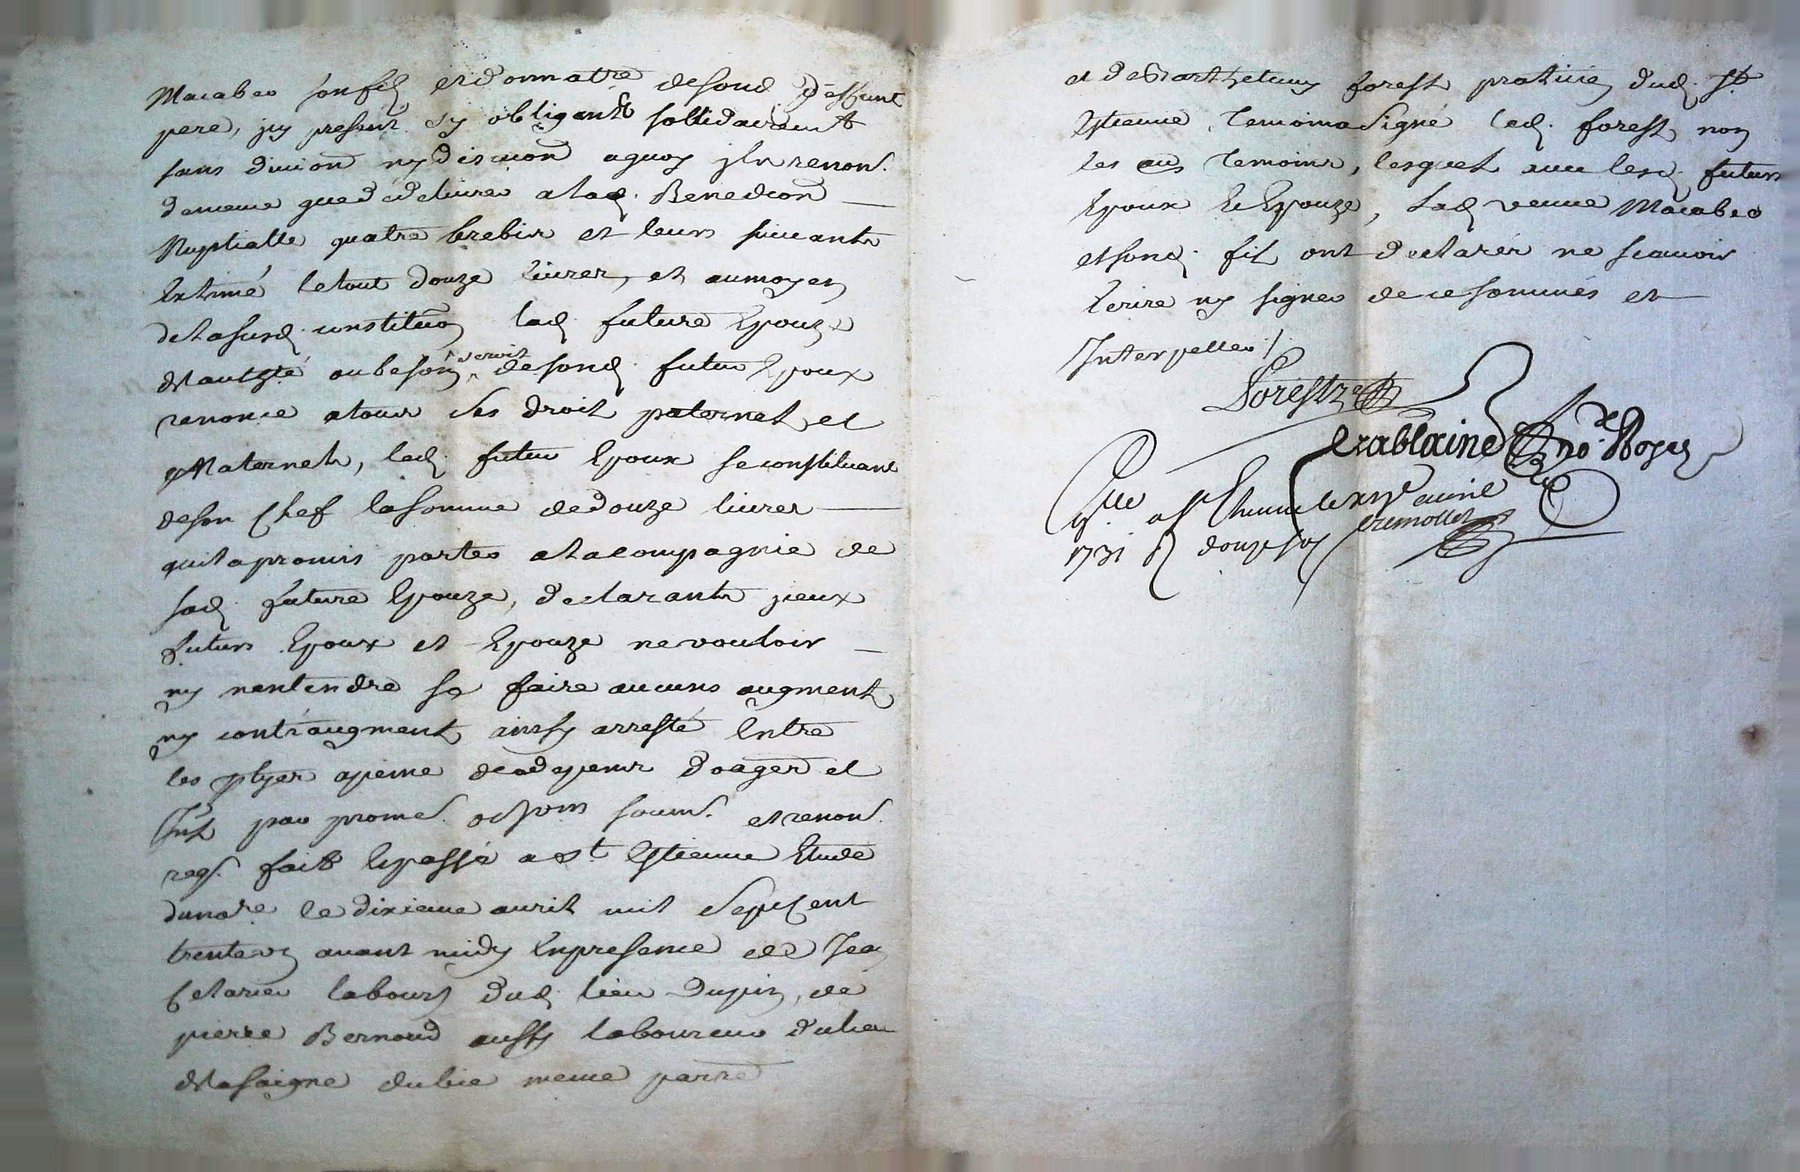 Macabeo son fils et donnatre de sond. deffunt
pere, jcy present s'y obligants sollidairement
sans division ny discution aquoy jls renon.
de meme que de delivrer a lad. Benediction
Nuptialle quatre brebis et leurs suivants
Extimé le tout douze livres, et aumoyen
de lasusd. constitution lad. future Epouze
de lauthté. ou besoin seroit de sond. futur Epoux
renonce a tous ses droit paternel et
Maternels, led. futur Epoux se constituant
de son chef la somme de douze livres
quil a promis porter a la compagnie de
sad. future Epouze, declarants jceux
futurs Epoux et Epouze ne vouloir
ny nentendre se faire aucuns augment
ny contraugment ainsy arresté Entre
les ptyes apeine de adepens
par promes. soum. et renon.
fait et passé a St Estienne Etude
du nore. le dixieme avril mil sept cent
trente un avant midy En presence de Jean
labour. dud. lieu Dupin, de
pierre Bernoud aussy laboureur du lieu
meme parre
et de Barthelemy forest praticien dud. St
Estienne, temoins signé led. forest, non
les aus temoins, lesquels avec lesd. futurs
Epoux et Epouze, lad. veuve Macabeo
et sond. fils ont declarér ne scavoir
Ecrire ny signer de ce sommés et
Interpelles /
Forest
no.re Royal
a St Etienne le avril
1731 R douze sols